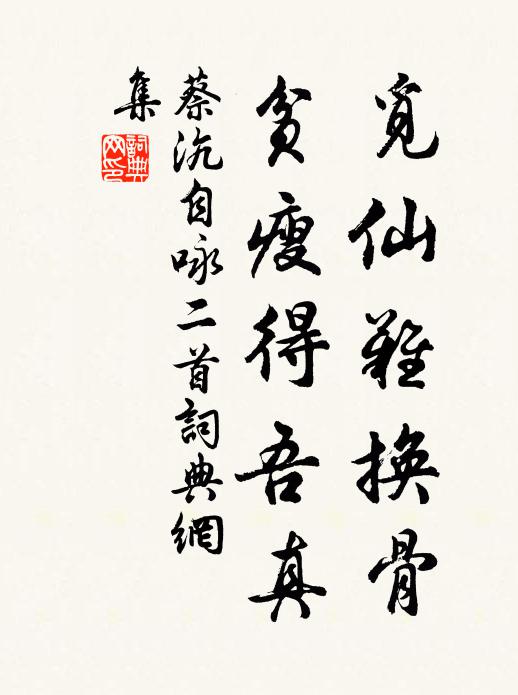 覓仙難換骨
貧瘦得吾真
蔡沆自咏二首詞典網
集
詞典
网印